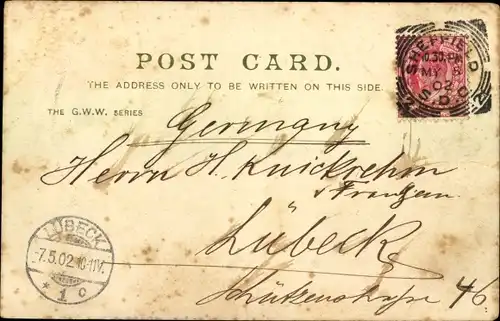 POST CARD.
THE ADDRESS ONLY TO BE WRITTEN ON THIS SIDE.
THE G.W.W. SERIES
SHEFFIELD
10.30.PM
MY 5
02
S.O.
2 2
Germany
Herrn H. Knickrehm
Lübeck
Schützenstraße 46.
LÜBECK
-7.5.02.10-11V.
* 1 c